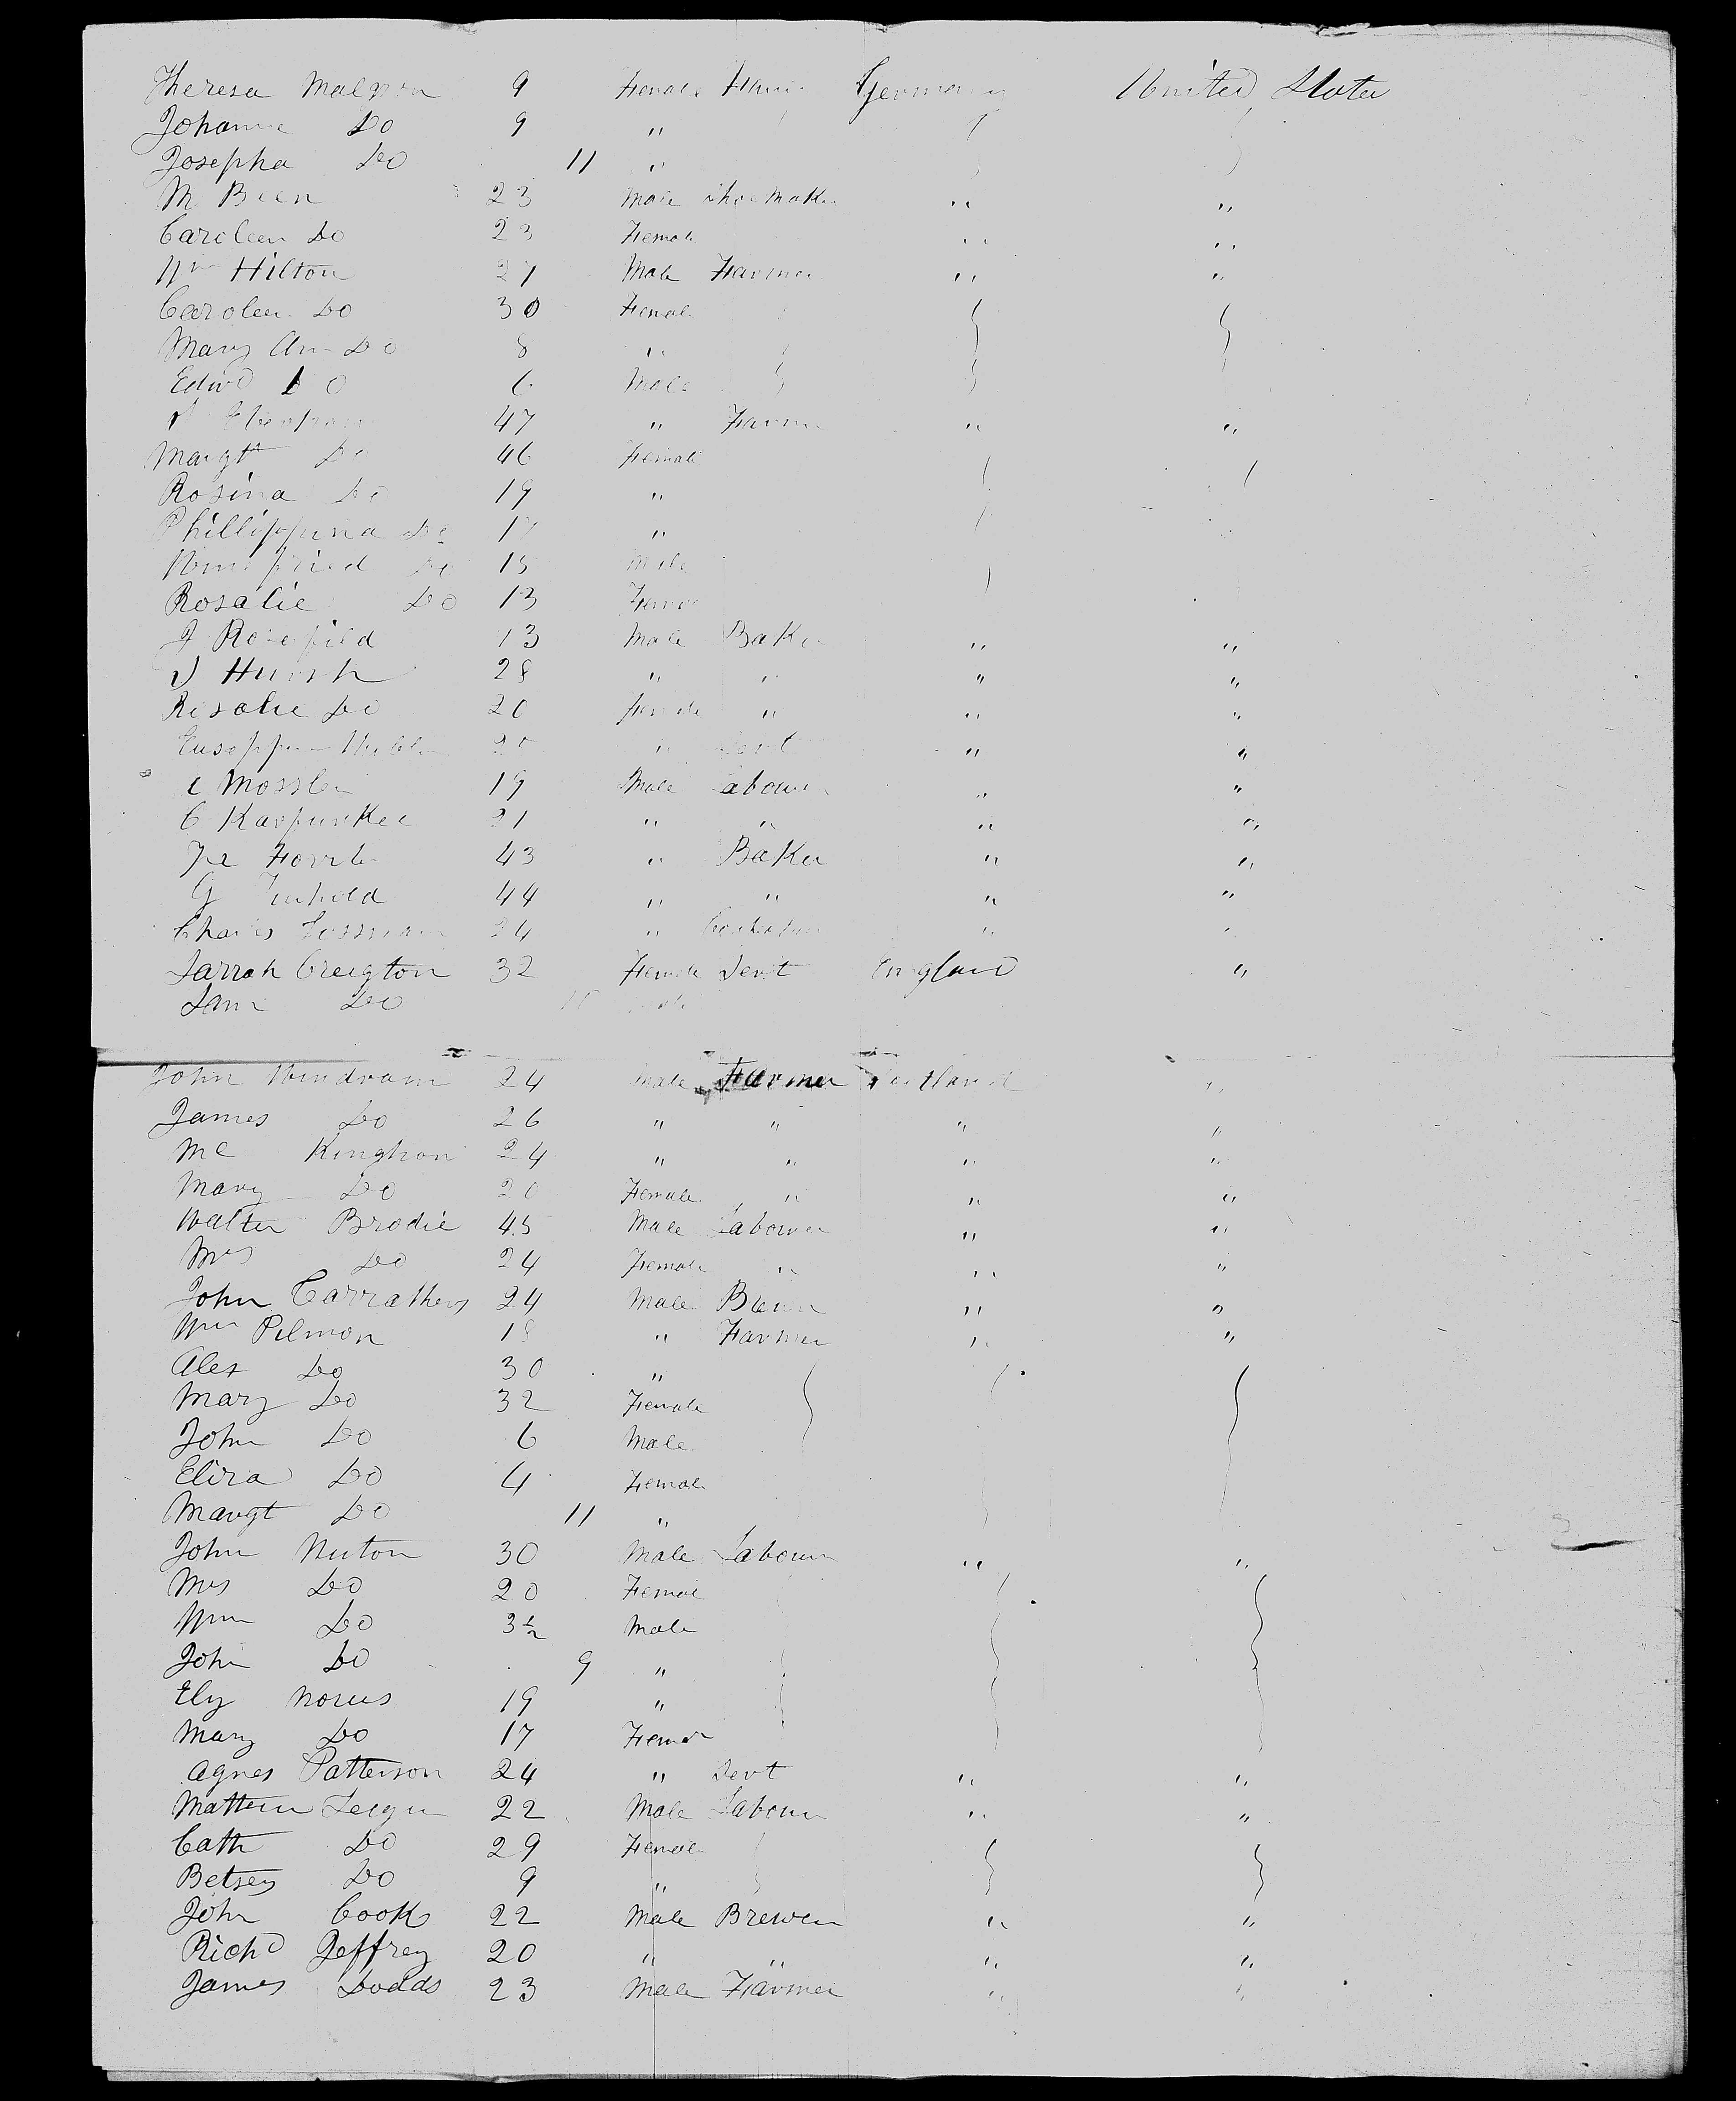 Theresa 9 Female Germany United States
Johanna Do 9 "
Josepha Do 11 "
M Bien 23 Male Shoemaker " "
Caroleen Do 23 Female " "
Wm Hilton 27 Male Farmer " "
Caroleen Do 30 Female
Mary Ann Do 8 "
Edwd Do 6 Male
47 " Farmer " "
Margt Do 46 Female
Rosina Do 19 "
Phillippina Do 17 "
Do 15 Male
Rosalie Do 13 Female
J Rosefield 13 Male Baker " "
J Hursh 28 " " " "
Rosalie Do 20 Female " " "
" Servt " "
C Mossler 19 Male Labourer " "
C Karfunkee 21 " " " "
43 " Baker " "
G 44 " " " "
Charles 24 " " "
Sarrah Creigton 32 Female Servt England "
Do
John Windram 24 Male Farmer Scotland "
James Do 26 " " " "
Mc Kinghron 24 " " " "
Mary Do 20 Female " " "
Walter Brodie 45 Male Labourer " "
Mrs Do 24 Female " " "
John Carrathers 24 Male Brewer " "
Wm Pilmon 18 " Farmer " "
Alex Do 30 "
Mary Do 32 Female
John Do 6 Male
Eliza Do 4 Female
Margt Do 11 "
John Nuton 30 Male Labourer " "
Mrs Do 20 Female
Wm Do 3½ Male
John Do 9 "
Ely Norris 19 "
Mary Do 17 Female
Agnes Patterson 24 " Servt " "
Mattew 22 Male Labourer " "
Cath Do 29 Female
Betsey Do 9 "
John Cook 22 Male Brewer " "
Richd Jeffrey 20 " " " "
James Dodds 23 Male Farmer " "